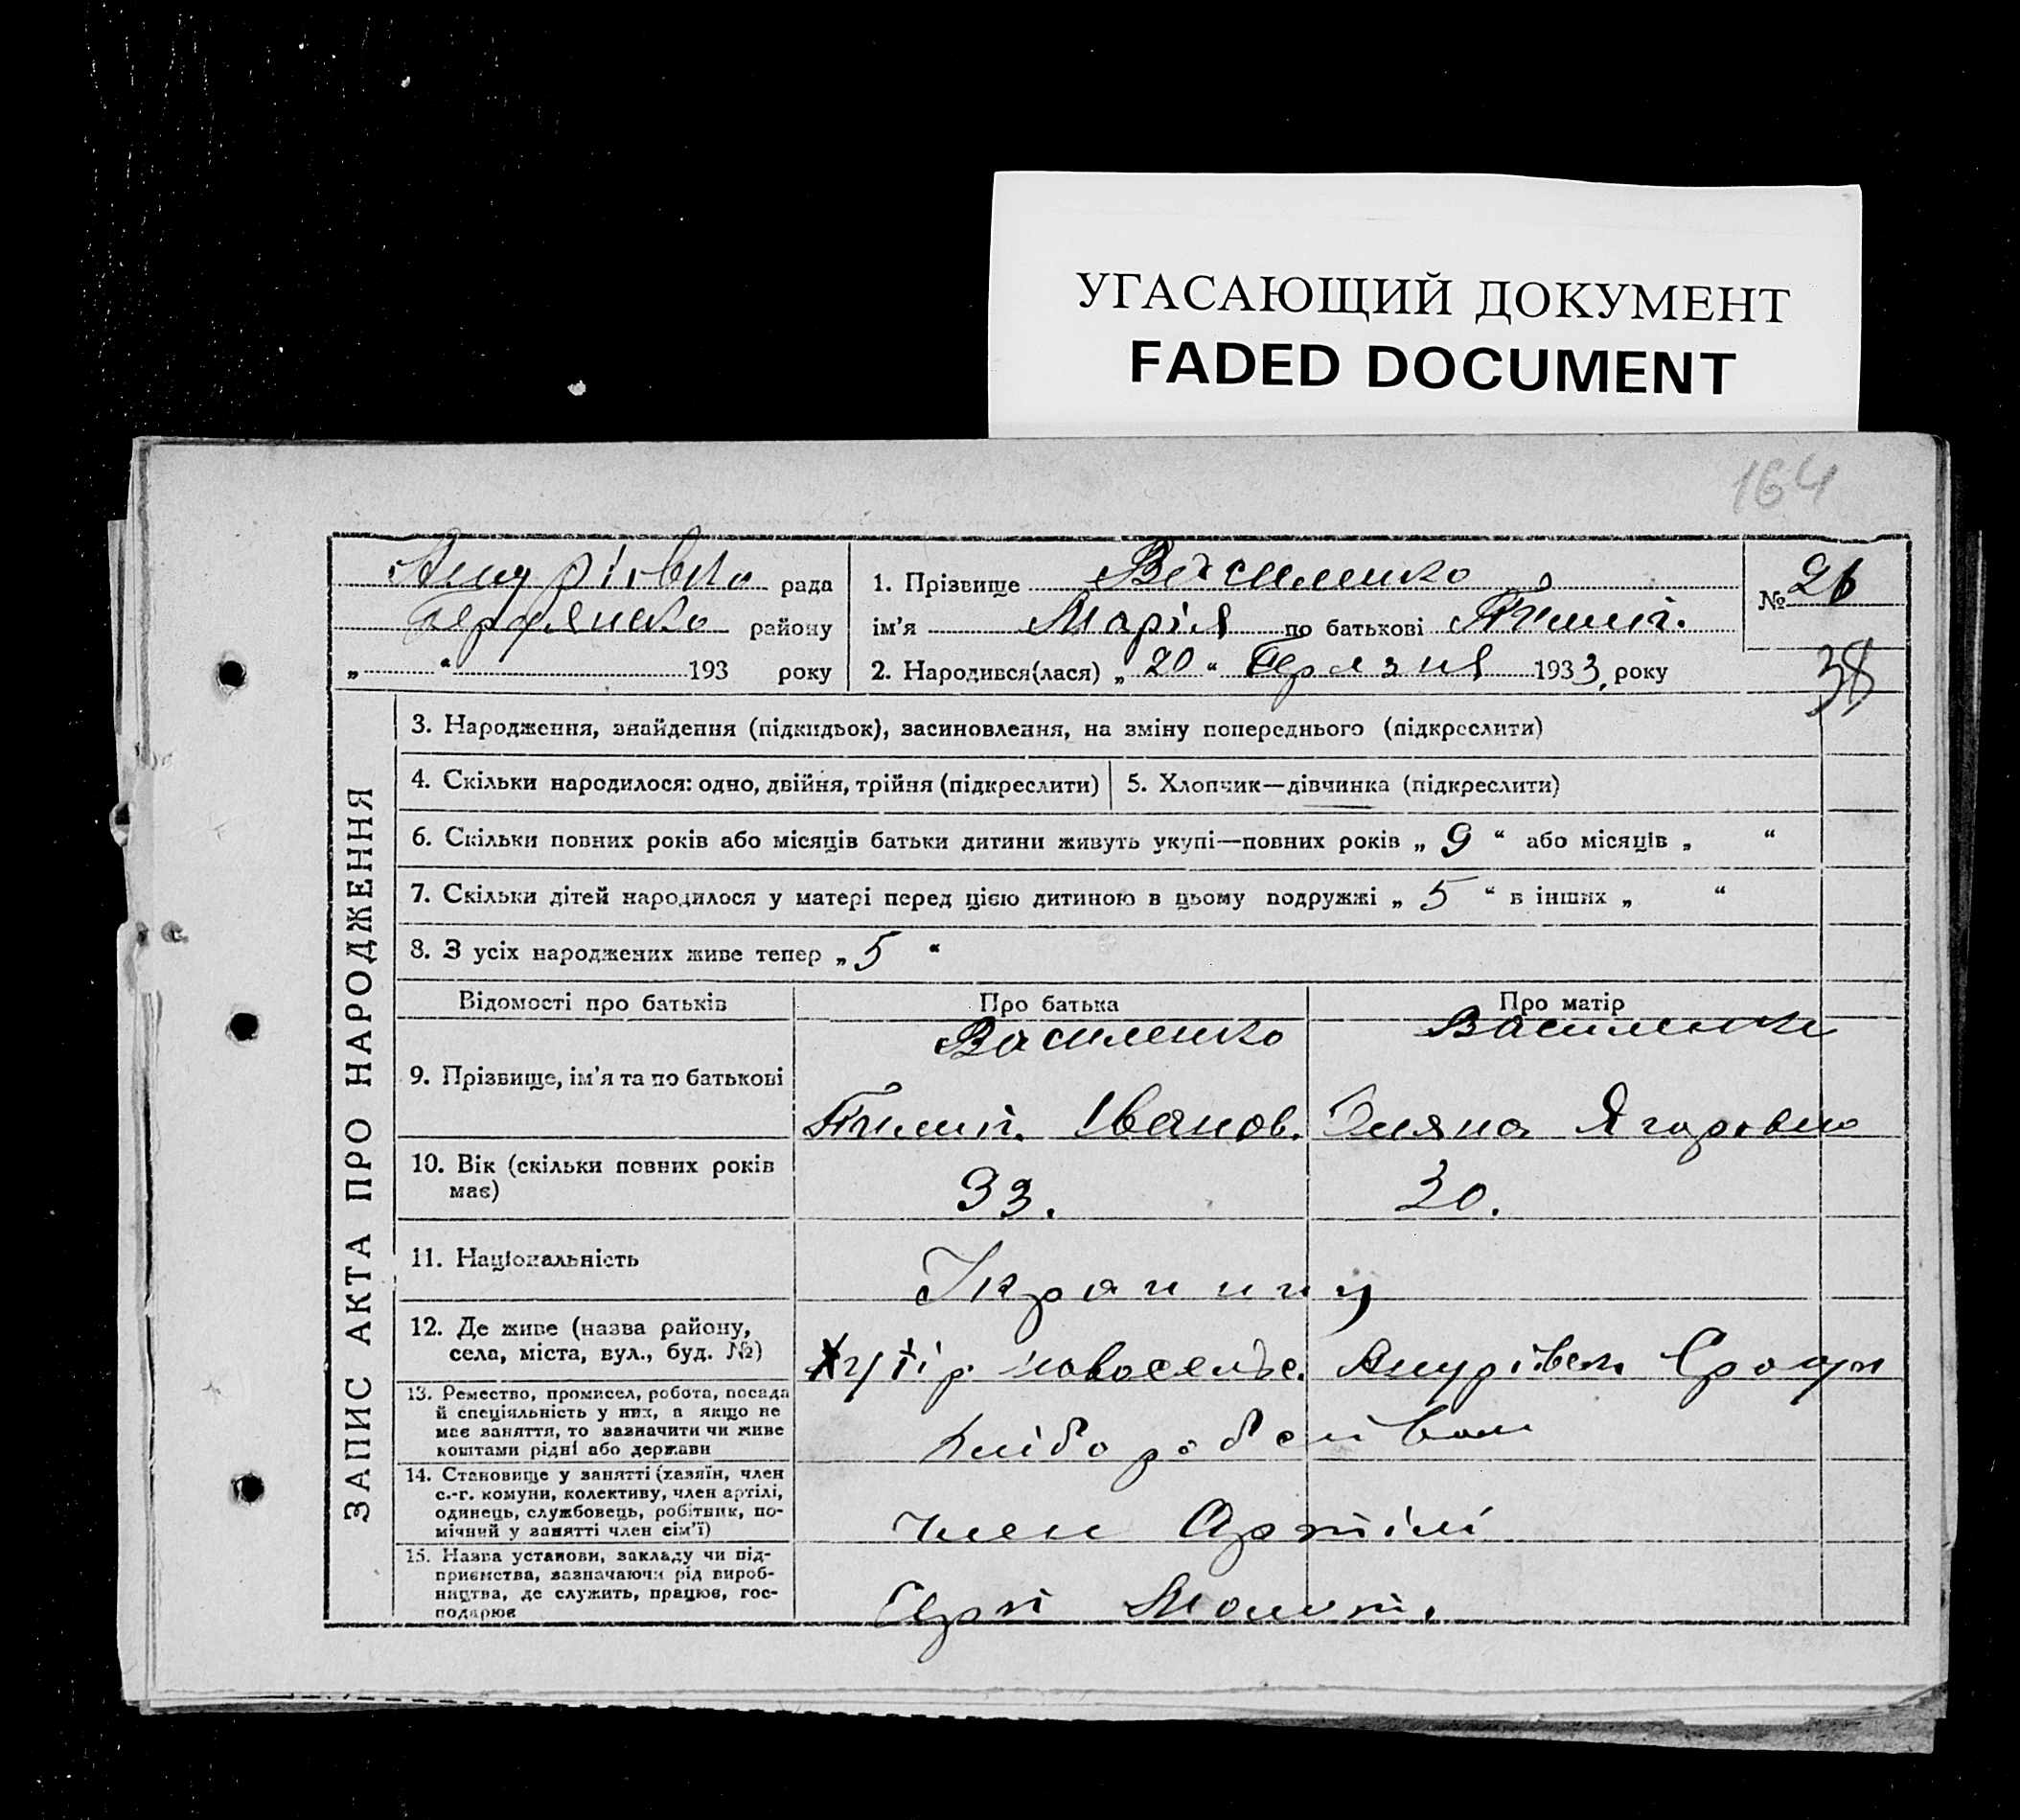 УГАСАЮЩИЙ ДОКУМЕНТ
FADED DOCUMENT
164
рада
району
„ “ 193 року
1. Прізвище Василенко
ім’я Марія по батькові
2. Народився(лася) „ 20 “ 1933 року
№ 26
38
ЗАПИС АКТА ПРО НАРОДЖЕННЯ
3. Народження, знайдення (підкидьок), засиновлення, на зміну попереднього (підкреслити)
4. Скільки народилося: одно, двійня, трійня (підкреслити)
5. Хлопчик—дівчинка (підкреслити)
6. Скільки повних років або місяців батьки дитини живуть укупі—повних років „ 9 “ або місяців „ “
7. Скільки дітей народилося у матері перед цією дитиною в цьому подружжі „ 5 “ в інших „ “
8. З усіх народжених живе тепер „ 5 “
Відомості про батьків
Про батька
Про матір
9. Прізвище, ім’я та по батькові
Василенко
Іванов.
Василенко
Ягоровна
10. Вік (скільки повних років
має)
33.
30.
11. Національність
12. Де живе (назва району,
села, міста, вул., буд. №)
Хутір
13. Ремество, промисел, робота, посада
й спеціяльність у них, а якщо не
має заняття, то зазначити чи живе
коштами рідні або держави
14. Становище у занятті (хазяїн, член
с.-г. комуни, колективу, член артілі,
одинець, службовець, робітник, по-
мічний у занятті член сім’ї)
член Артілі
15. Назва установи, закладу чи під-
приємства, зазначаючи рід вироб-
ництва, де служить, працює, гос-
подарює